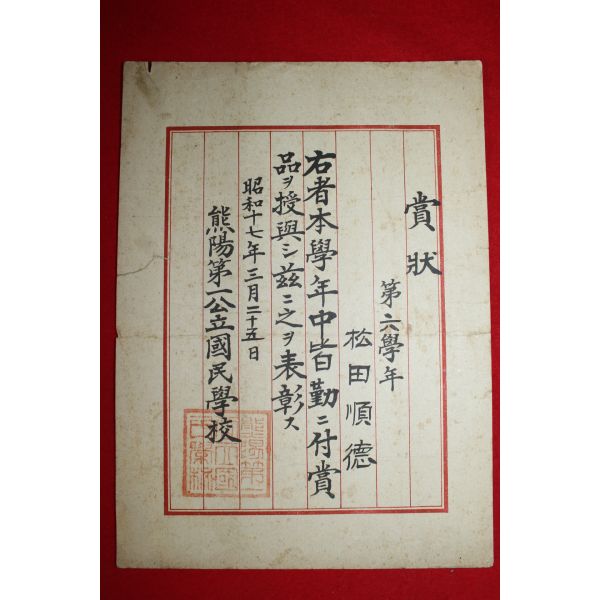 賞狀
第六學年
松田順德
右者本學年中皆勤ニ付賞
品ヲ授與シ茲ニ之ヲ表彰ス
昭和十七年三月二十五日
熊陽第一公立國民學校